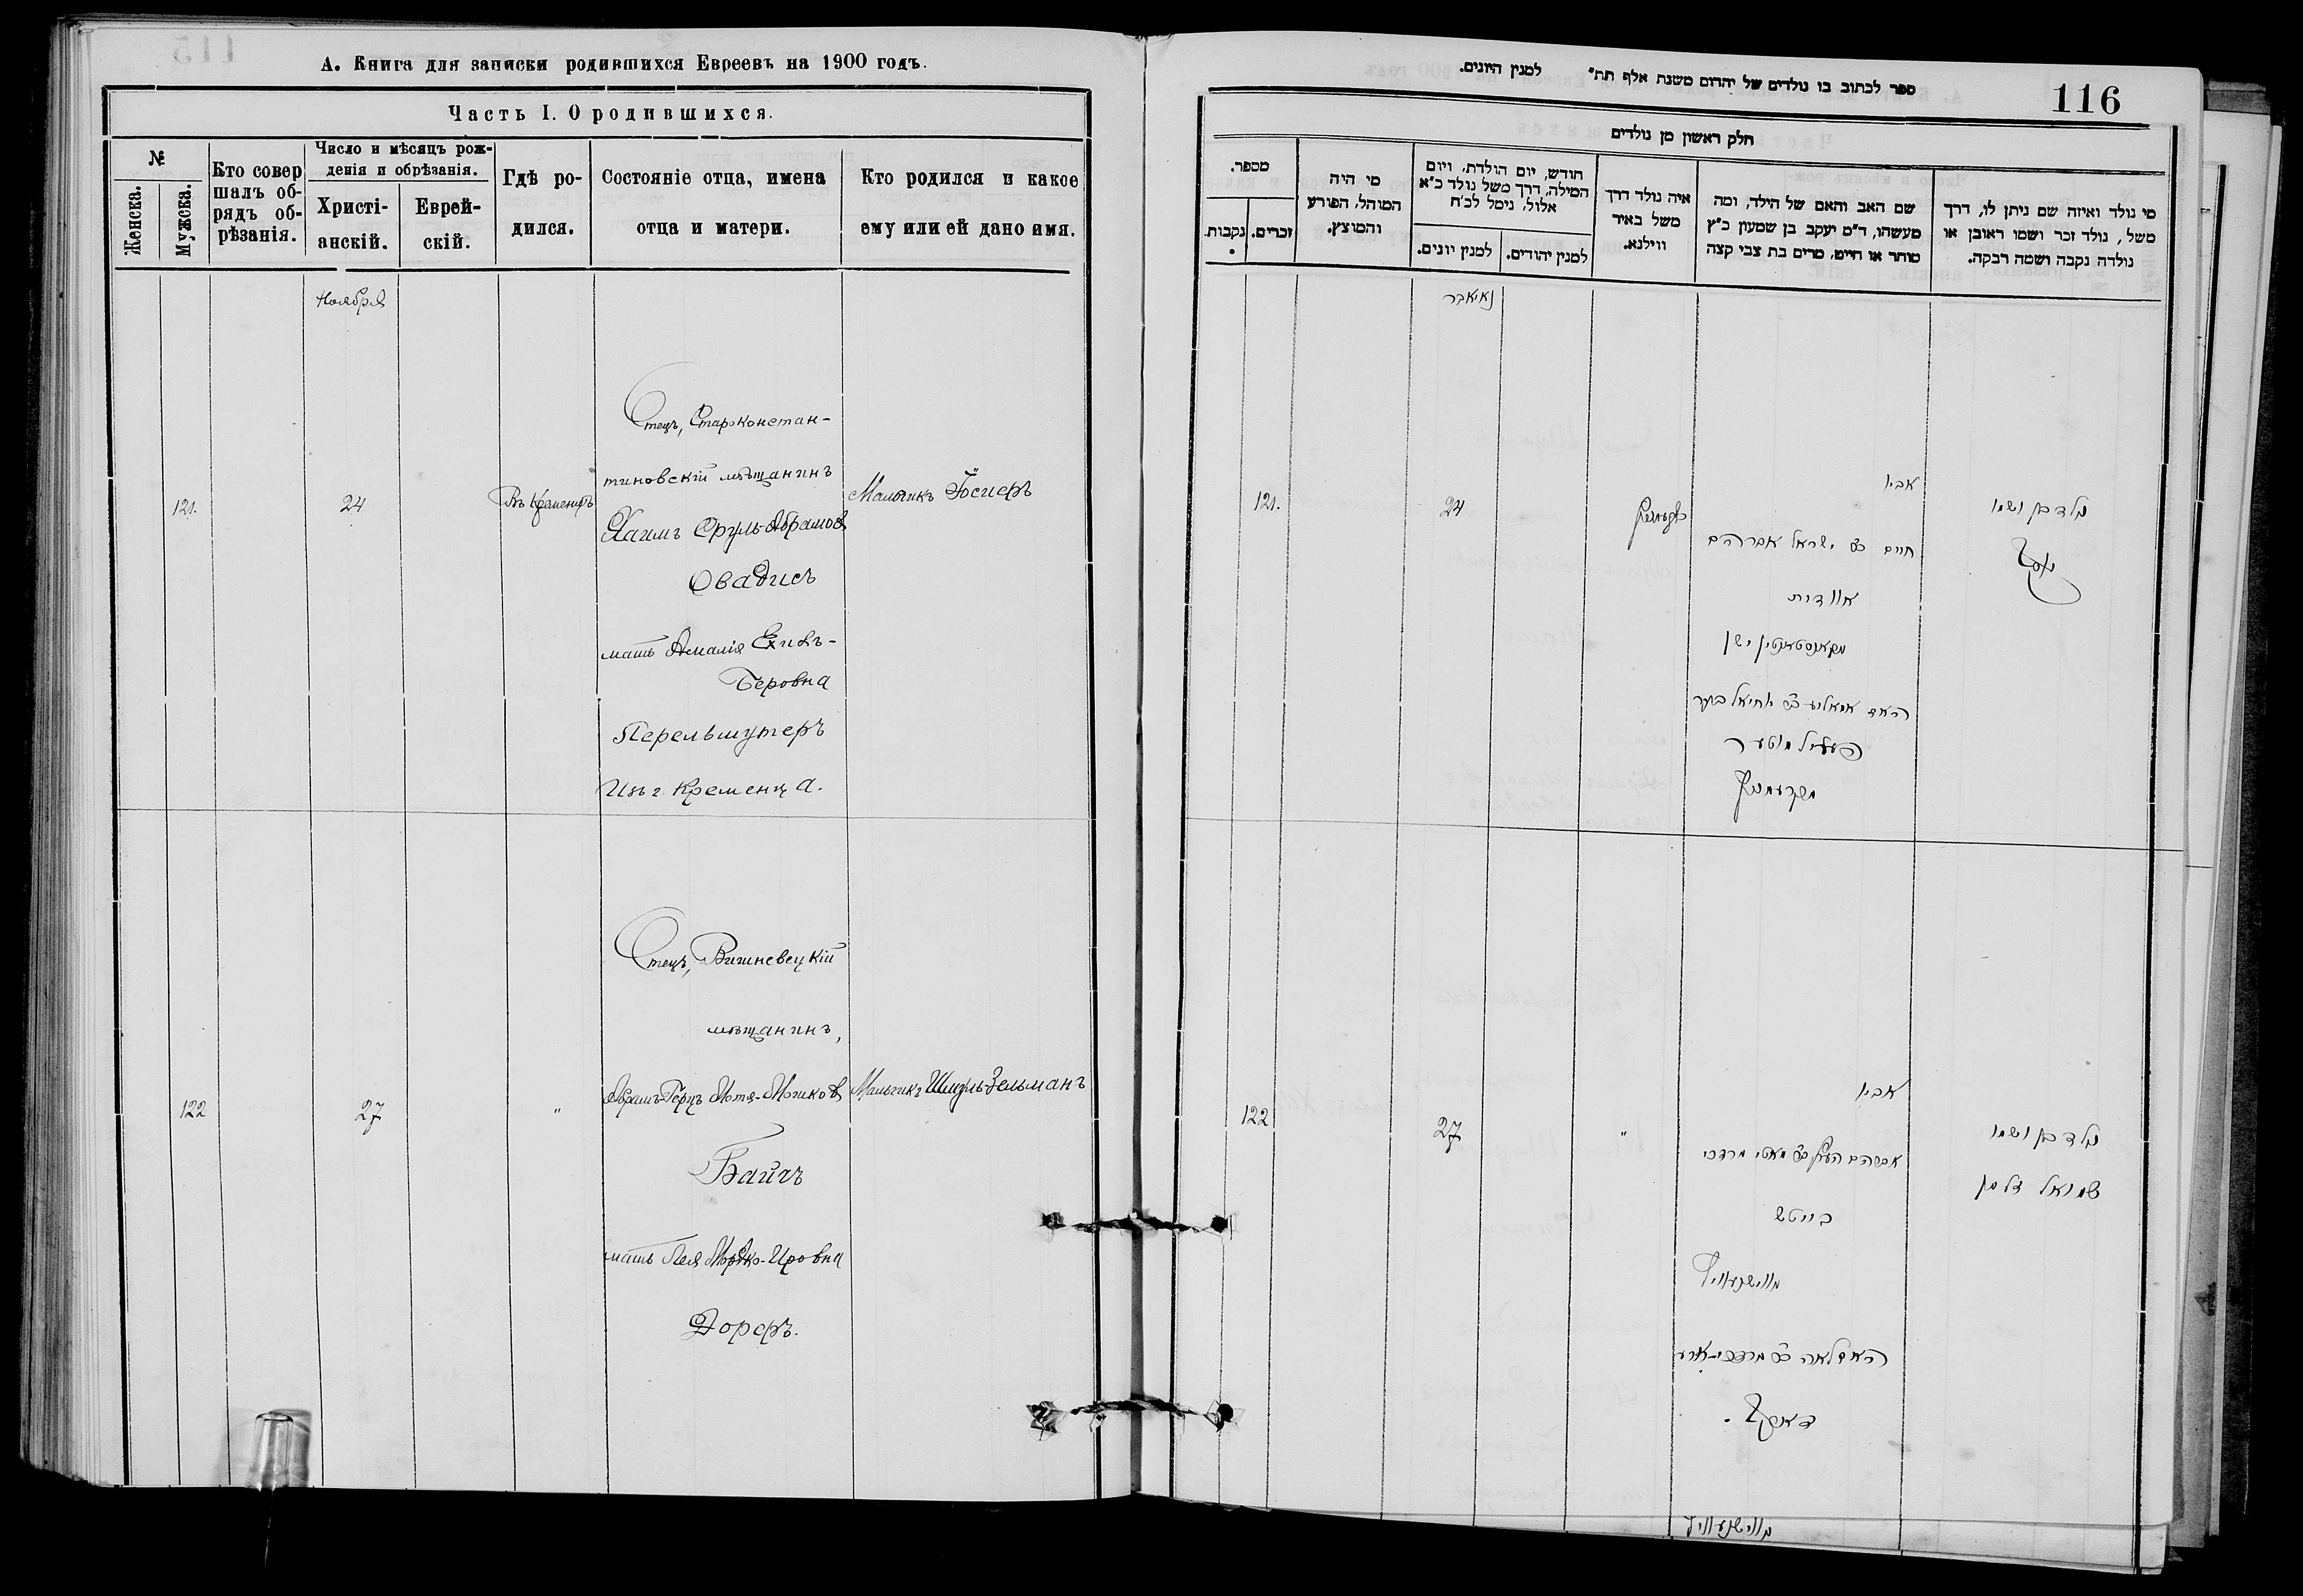 А. Книга для записки родившихся Евреевъ на 1900 годъ.
Часть I. О родившихся.
№
Женска.
Мужска.
Кто совер
шалъ об-
рядъ об-
рѣзанія.
Число и мѣсяцъ рож-
денія и обрѣзанія.
Христі-
анскій.
Еврей-
скій.
Гдѣ ро-
дился.
Состояніе отца, имена
отца и матери.
Кто родился и какое
ему или ей дано имя.
Ноября
121.
24
Въ Кременцѣ
Отецъ, Староконстан-
тиновскій мѣщанинъ
Хаимъ Сруль-Абрамов
Овадисъ
мать Амалія Ехиль-
Беровна
Перельмутеръ
Изъ г. Кременца.
Мальчикъ
122
27
"
Отецъ, Вишневецкій
мѣщанинъ,
Абрамъ-Герцъ Мотя-Мошков
Байчъ
мать Лея Мордко-Ировна
Дорфъ.
Мальчикъ Шмуль Зельманъ
ספר לכתוב בו נולדים של יהדום משנת אלף תת" למנין היונים.
116
חלק ראשון מן נולדים
מספר.
נקבות.
זכרים.
מי היה
המוהל, הפורע
והמוצץ.
חודש, יום הולדת, ויום
המילה, דרך משל נולד כ"א
אלול, נימל לכ"ח
למנין יונים.
למנין יהודים.
איה נולד דרך
משל באיר
ווילנא.
שם האב והאם של הילד, ומה
מעשהו, ד"מ יעקב בן שמעון כ"ץ
סוחר או חייט, מרים בת צבי קצה
מי נולד ואיזה שם ניתן לו, דרך
משל, נולד זכר ושמו ראובן או
נולדה נקבה ושמה רבקה.
נאיאבר
121.
24
אביו
חיים ב"ר ישראל אברהם
אוודית
מקאנסטאנטין ישן
האם אמאליע ב"ר יחיאל בער
פערילמוטער
מקרעמניץ
ילד בן ושמו
יוסף
122
27
"
אביו
אברהם הערץ ב"ר מאטי מרדכי
בייטש
מווישניוויץ
האם לאה ב"ר מרדכי-אורי
דארף.
ילד בן ושמו
שמואל זלמן
מווישניוויץ